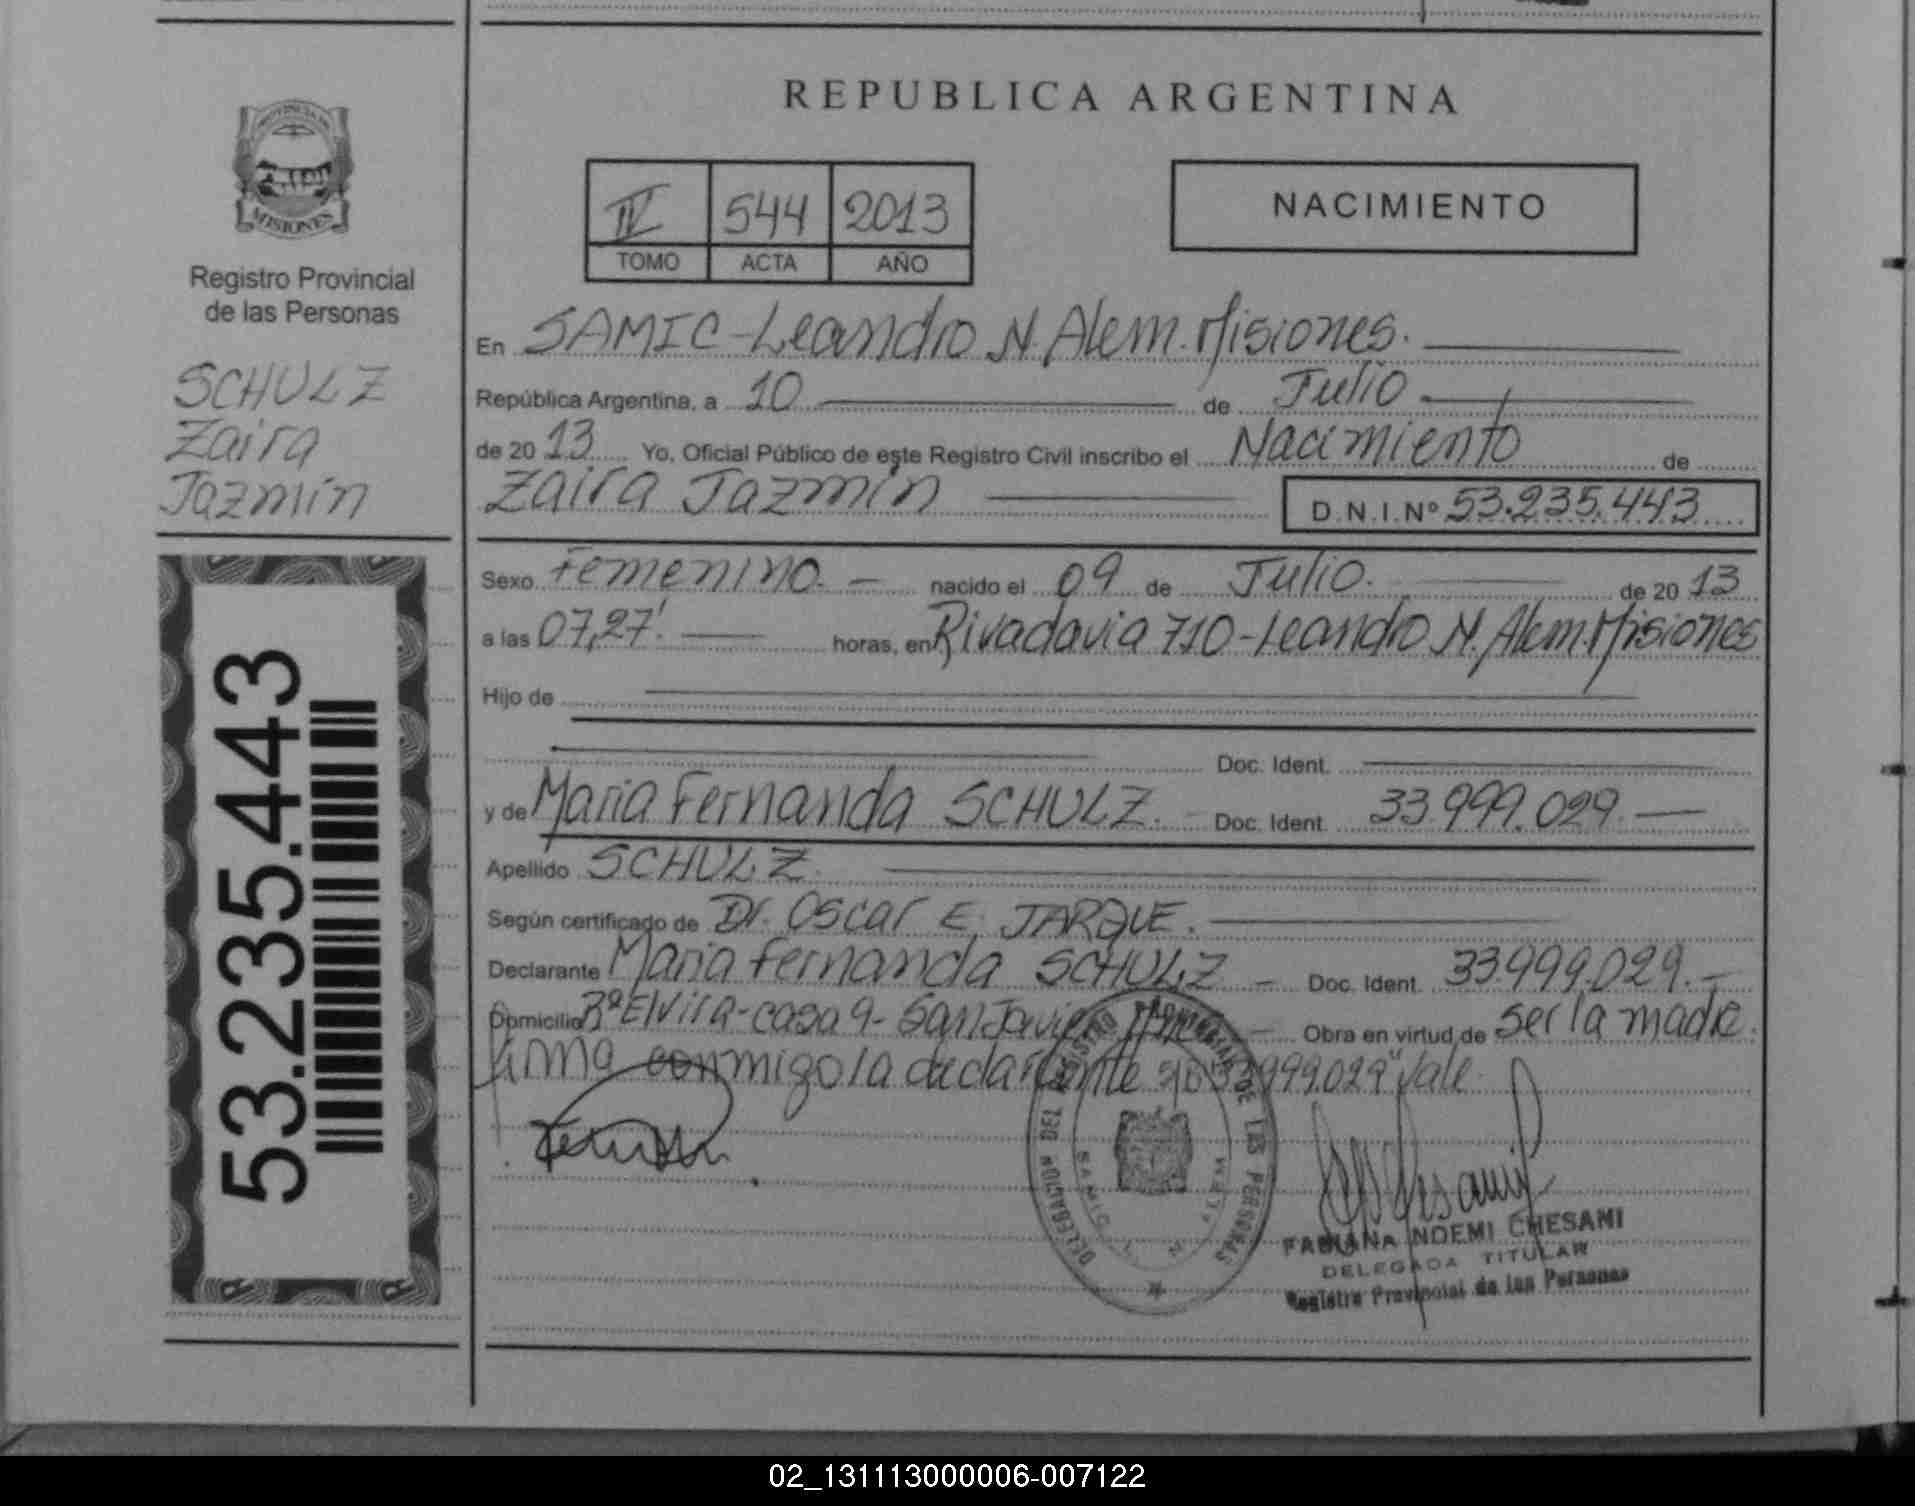 REPUBLICA ARGENTINA
PROVINCIA DE
MISIONES
Registro Provincial
de las Personas
SCHULZ
Zaira
Jazmín
53.235.443
IV 544 2013
TOMO ACTA AÑO
NACIMIENTO
En SAMIC-Leandro N. Alem. Misiones.
República Argentina, a 10 de Julio
de 20 13 Yo, Oficial Público de este Registro Civil inscribo el Nacimiento de
Zaira Jazmín D.N.I.Nº 53.235.443
Sexo Femenino. nacido el 09 de Julio. de 20 13
a las 07,27'. horas, en Rivadavia 710-Leandro N. Alem. Misiones
Hijo de
Doc. Ident.
y de Maria Fernanda SCHULZ. Doc. Ident. 33.999.029.
Apellido SCHULZ.
Según certificado de Dr. Oscar E. JARQUE.
Declarante Maria Fernanda SCHULZ Doc. Ident. 33.999.029.
Domicilio Bº Elvira-casa 9- San Javier Obra en virtud de ser la madre.
Firma conmigo la declarante 999.029" Vale.
DELEGACION DEL REGISTRO PROVINCIAL DE LAS PERSONAS
SAMIC L N ALEM
FABIANA NOEMI CHESANI
DELEGADA TITULAR
Registro Provincial de las Personas
02_131113000006-007122